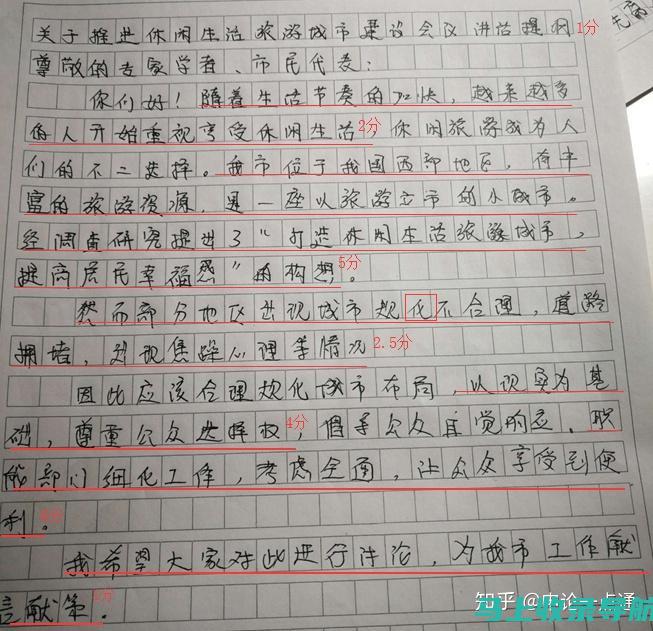 关于推进休闲生活旅游城市建设会议讲话提纲 1分
尊敬的专家学者、市民代表：
你们好！随着生活节奏的加快，越来越多
的人开始重视享受休闲生活 2分 休闲旅游成为人
们的不二选择。我市位于我国西部地区，有丰
富的旅游资源，是一座以旅游立市的小城市。
经调查研究提出了"打造休闲生活旅游城市，
提高居民幸福感"的构想。 5分
然而部分地区出现城市规化不合理，道路
拥堵，出现 心理等情况 2.5分
因此应该合理规化城市布局，以现实为基
础，尊重公众选择权 4分 ，倡导公众自觉响应。职
能部门细化工作，考虑全通，让公众享受到便
利。
我希望大家对此进行讨论，为我市工作献
言献策。
知乎 @ 论一点通
马上收录导航